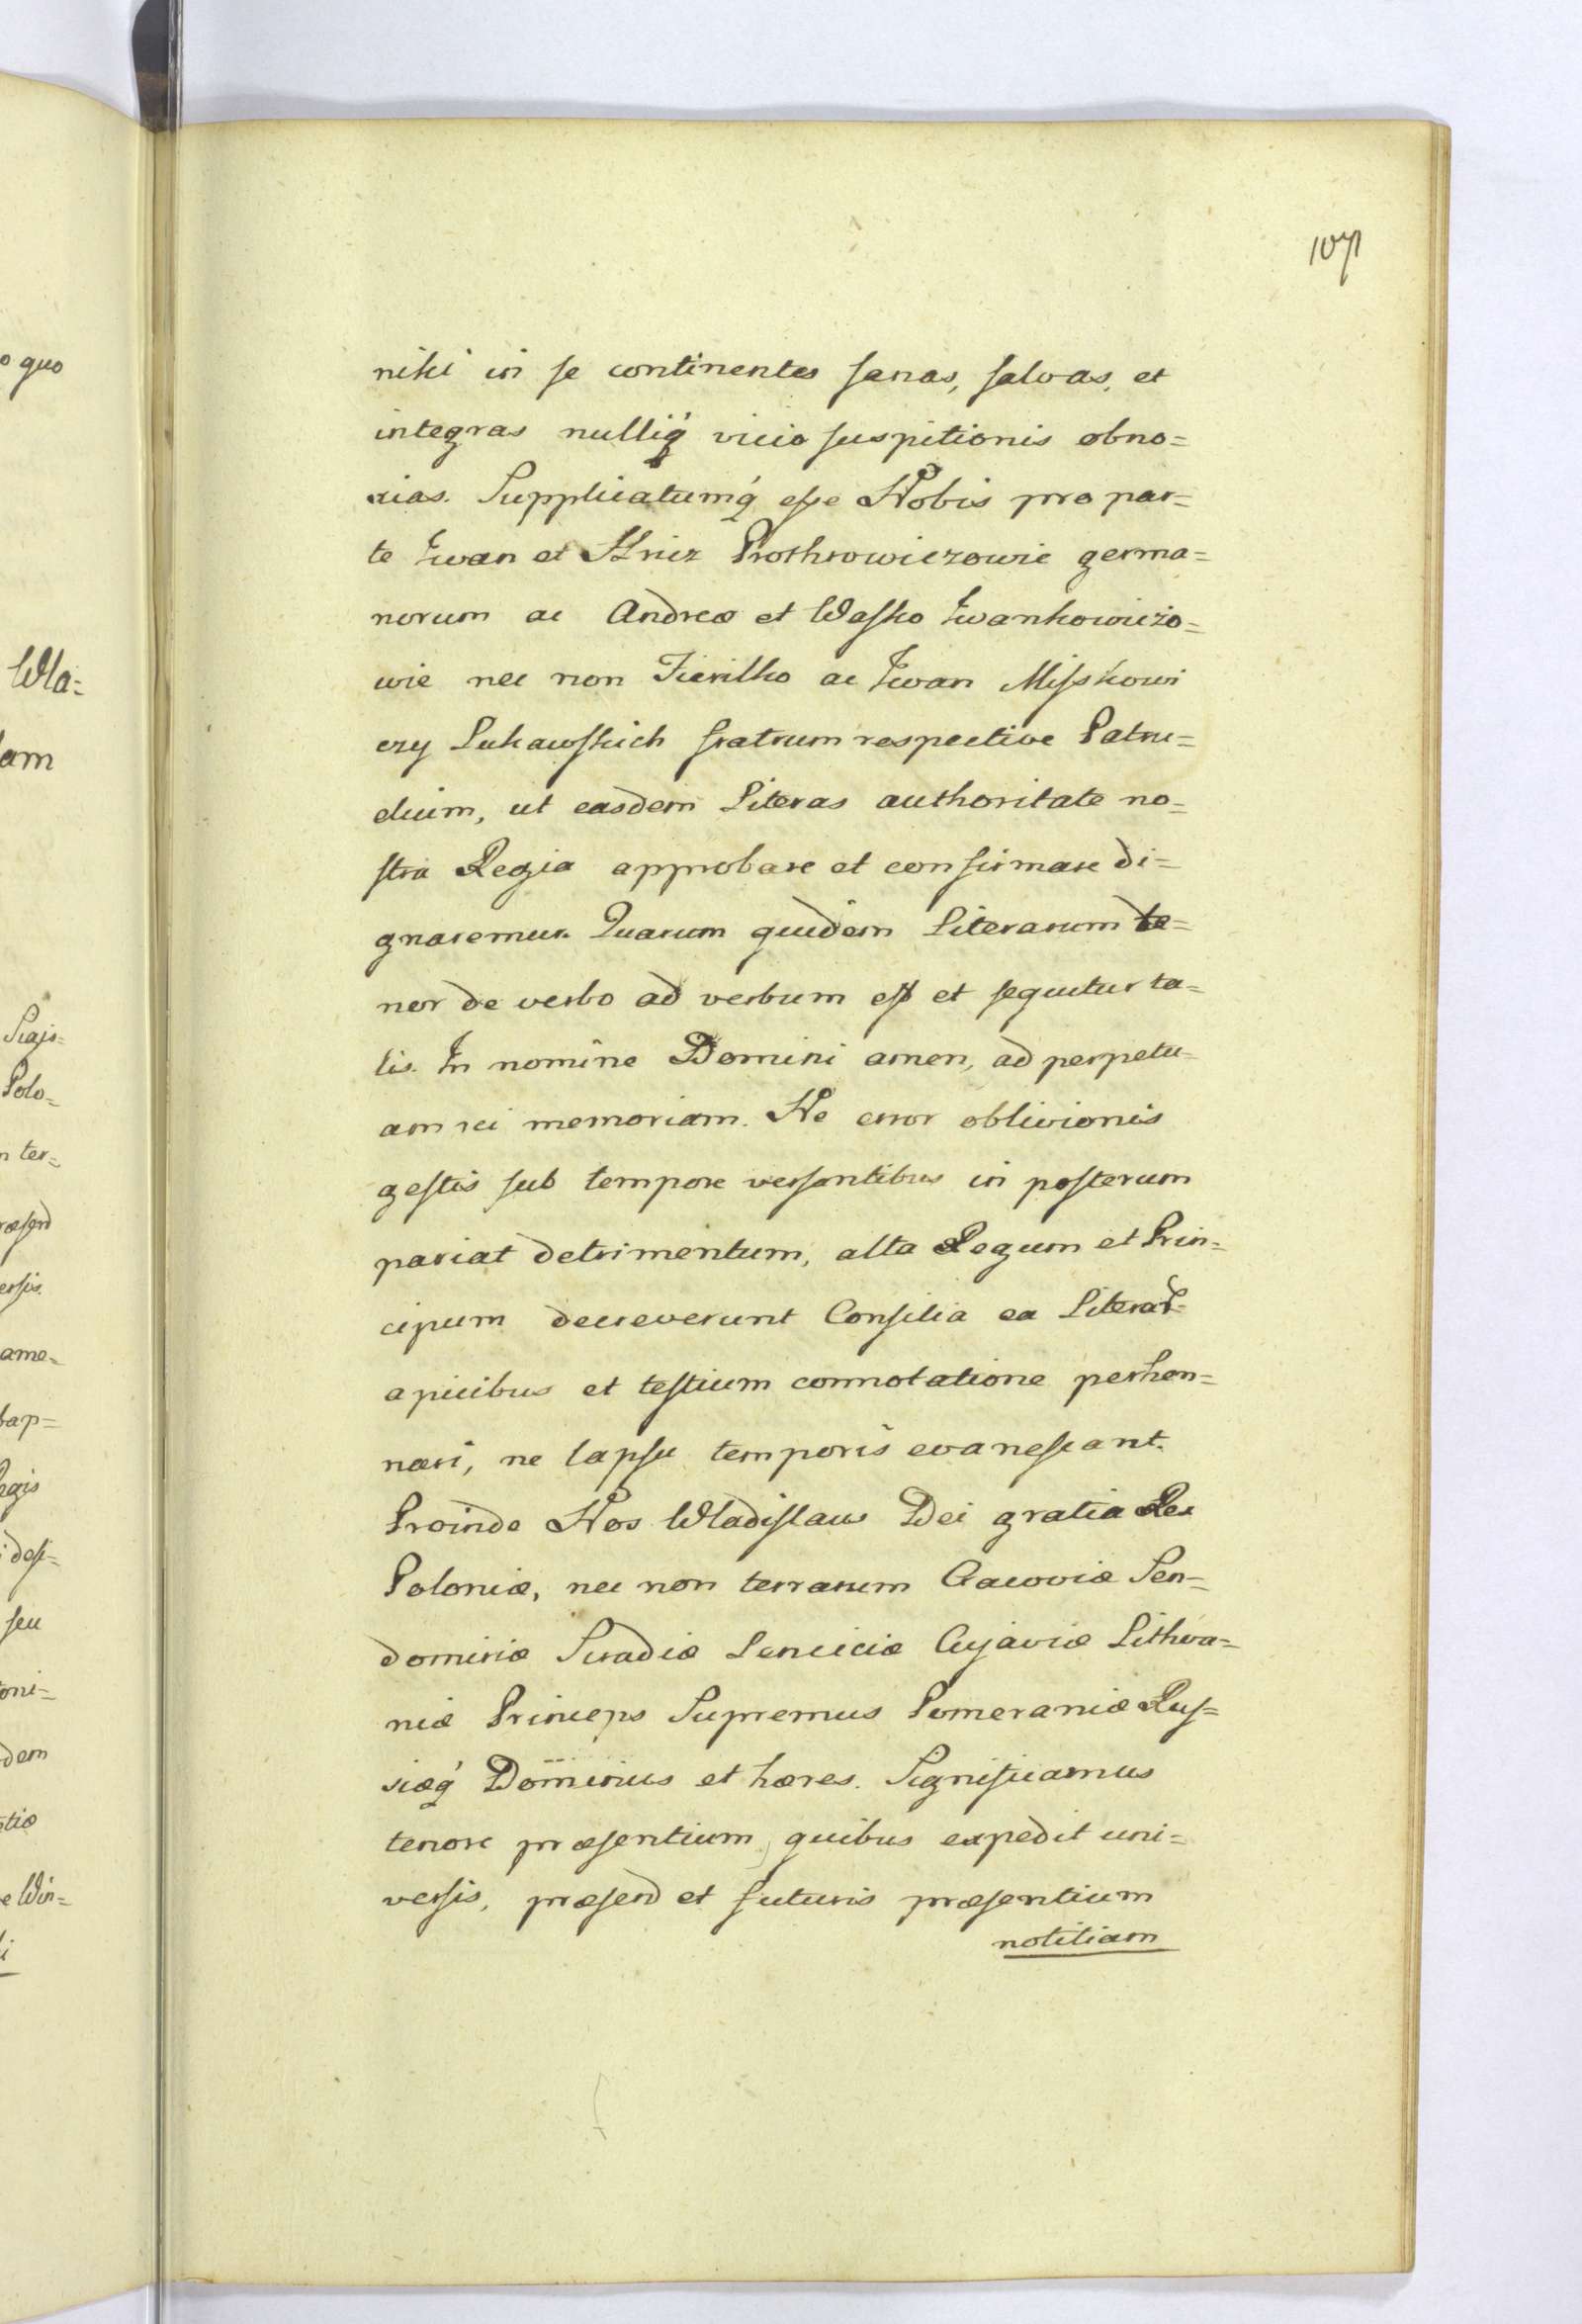 107
niki in se continentes sanas, salvas, et
integras nulliq́ vicio suspitionis obno=
xias. Supplicatumq́ esse Nobis pro par=
te Iwan et Hricz Prothrowiczowie germa=
norum ac Andreæ et Wasko Iwankowiczo=
wie nec non Fierilko ac Iwan Misskowi
czy Lukawskich fratrum respective Patru=
elium, ut easdem Literas authoritate no=
stra Regia approbare et confirmare di=
gnaremur. Quarum quidem Literarum te=
nor de verbo ad verbum est et sequitur ta=
lis. In nomine Domini amen, ad perpetu=
am rei memoriam. Ne error oblivionis
gestis sub tempore versantibus in posterum
pariat detrimentum, alta Regum et Prin=
cipum decreverunt Consilia ea Literar
apicibus et testium connotatione perhen=
nari, ne lapsu temporis evanescant.
Proinde Nos Wladislaus Dei gratia Rex
Poloniæ, nec non terrarum Cracoviæ San=
domiriæ Siradiæ Lanciciæ Cujaviæ Lithva=
niæ Princeps Supremus Pomeraniæ Rus=
siæq́ Dominus et hæres. Significamus
tenore præsentium, quibus expedit uni=
versis, præsend et futuris præsentium
notitiam
o quo
Wla=
am
Sigis=
Polo=
n ter=
ræsend
ersis.
ame=
bap=
Regis
desi=
seu
oni=
dem
tiæ
e Win=
i